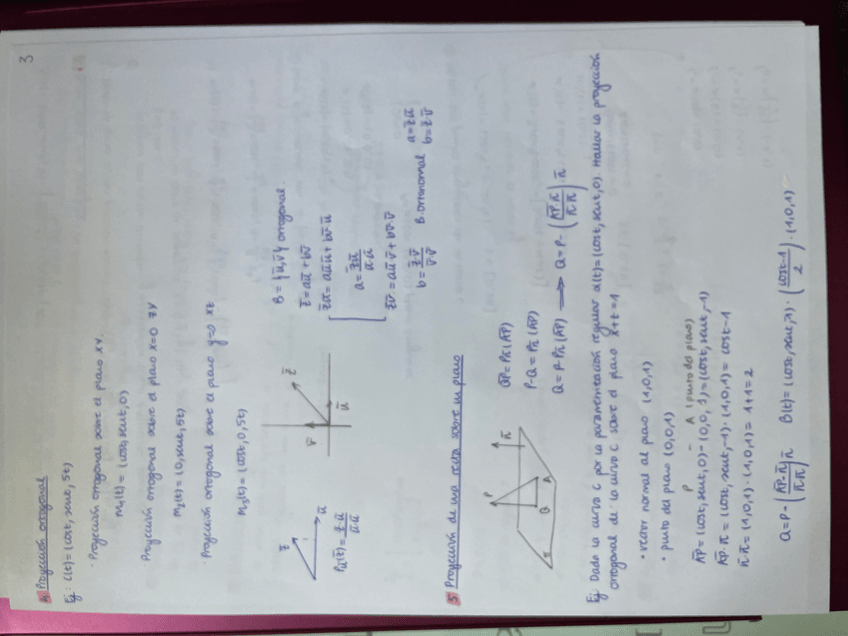 3
4 Proyección ortogonal
Ej: C(t)=(cost, sent, 5t)
· Proyección ortogonal sobre el plano XY.
M₁(t) = (cost, sent, 0)
Proyección ortogonal sobre el plano x=0 ZY
M₂(t) = (0, sent, 5t)
· Proyección ortogonal sobre el plano y=0 XZ
M₃(t) = (cost, 0, 5t)
z̄
ū
Pū(z̄) = z̄·ū / ū·ū
v̄
z̄
ū
B = {ū, v̄} ortogonal.
z̄ = aū + bv̄
z̄ū = aūū + bv̄·ū
a = z̄ū / ū·ū
z̄v̄ = aū v̄ + bv·v̄
b = z̄·v̄ / v̄·v̄
B. ortonormal
a = z̄ū
b = z̄·v̄
5 Proyección de una recta sobre un plano
P
n̄
Q
A
π
Q̄P = Pn̄(ĀP)
P-Q = Pn̄(ĀP)
Q = P-Pn̄(ĀP) → Q = P - (ĀP·n̄ / n̄·n̄)·n̄
Ej: Dada la curva C por la parametrización regular α(t) = (cost, sent, 0). Hallar la proyección
ortogonal de la curva C sobre el plano x+z=1
· vector normal al plano (1,0,1)
· punto del plano (0,0,1)
P - A (punto del plano)
ĀP = (cost, sent, 0) - (0,0,1) = (cost, sent, -1)
ĀP·n̄ = (cost, sent, -1)·(1,0,1) = cost-1
n̄·n̄ = (1,0,1)·(1,0,1) = 1+1 = 2
Q = P - (ĀP·n̄ / n̄·n̄) n̄ B(t) = (cost, sent, 1)·(cost-1 / 2)·(1,0,1)